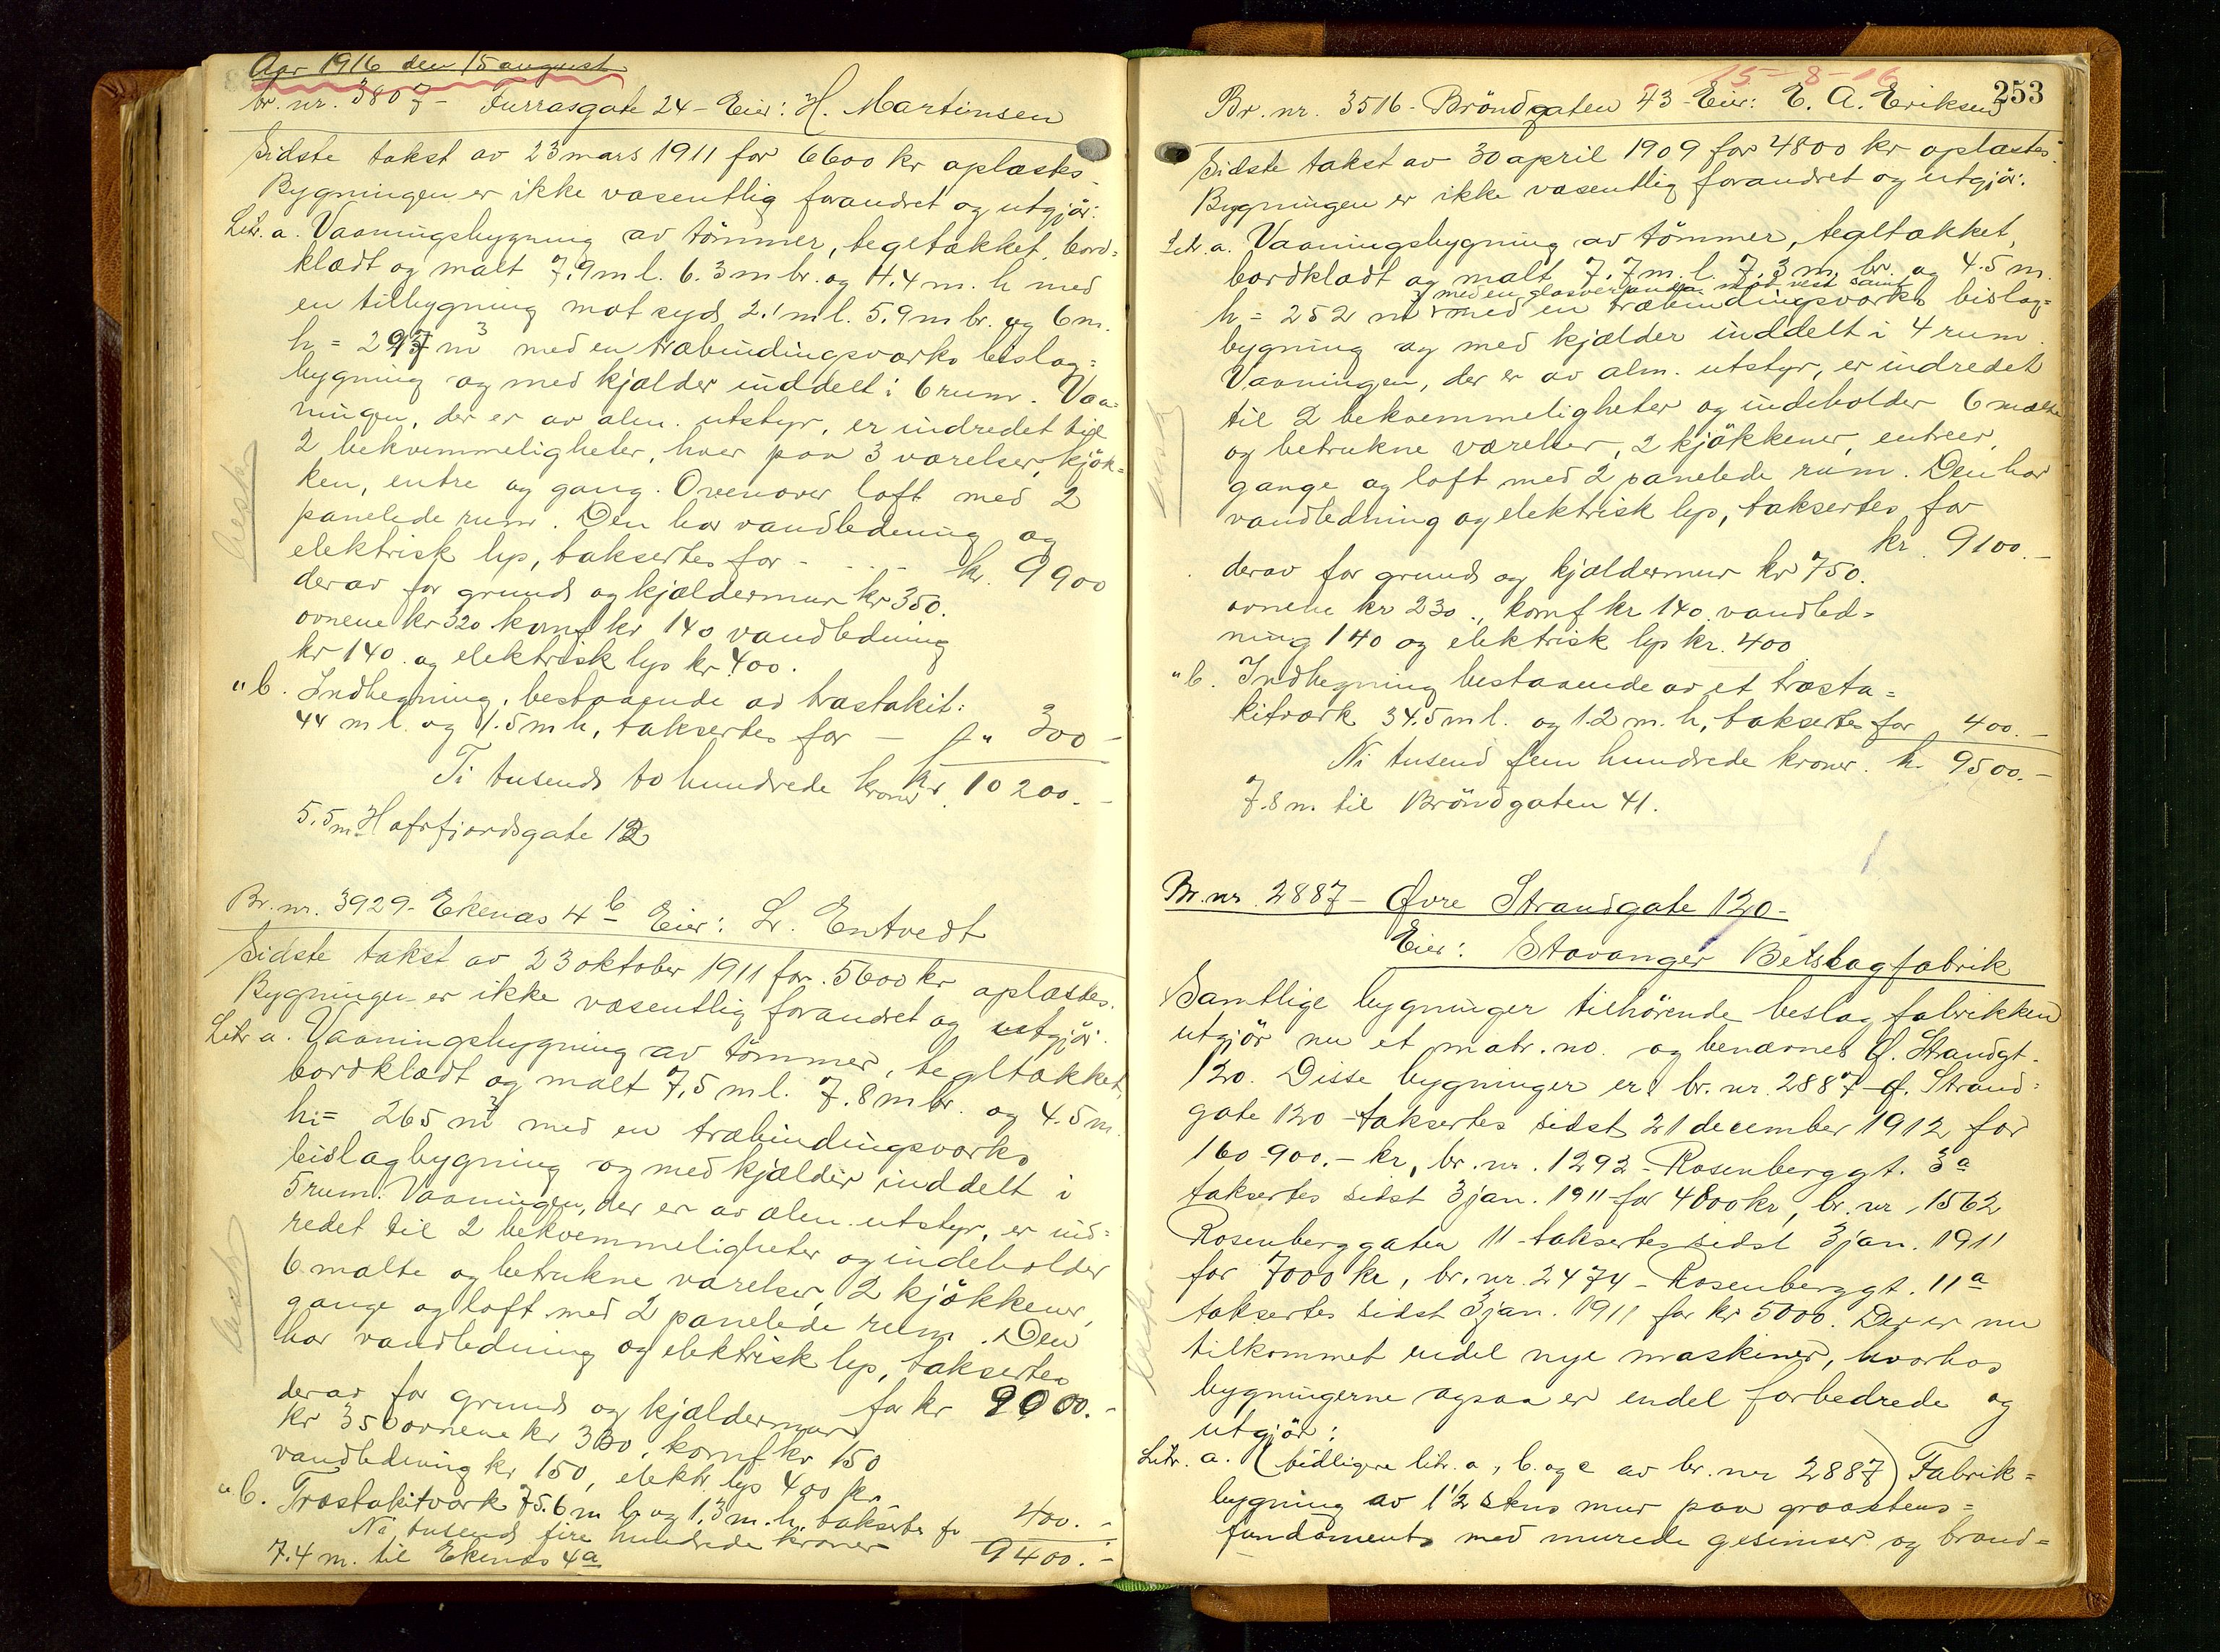 Aar 1916 den 15 august
br. nr. 3807 - Furrasgate 24 - Eier: H. Martinsen
Sidste takst av 23 mars 1911 for 6600 kr oplæstes.
Bygningen er ikke væsentlig forandret og utgjör:
Litr. a. Vaaningsbygning av tömmer, tegltækket, bord=
klædt og malt 7.9 m l. 6.3 m br. og 4.4 m. h med
en tilbygning mot syd 2.1 m l. 5.9 m br. og 6 m.
h = 297 m³ med en træbindingsværks bislag=
bygning og med kjælder inddelt i 6 rum. Vaa=
ningen, der er av alm. utstyr, er indredet til
2 bekvemmeligheter, hver paa 3 værelser, kjök=
ken, entre og gang. Ovenover loft med 2
panelede rum. Den har vandledning og
elektrisk lys, taksertes for - . . . - kr. 9900
derav for grund og kjældermur kr 350.
ovnene kr 320 komf kr 140 vandledning
kr 140. og elektrisk lys kr 400.
" b. Indhegning, bestaaende av træstakit:
44 m l. og 1.5 m h, taksertes for - " 300 -
Ti tusend to hundrede kroner kr. 10200. -
5.5 m Hafrfjordsgate 12
besk
Br. nr. 3929 - Ekenæs 4 b - Eier: L. Entvedt
Sidste takst av 23 oktober 1911 for 5600 kr oplæstes.
Bygningen er ikke væsentlig forandret og utgjör:
Litr a. Vaaningsbygning av tömmer, tegltækket,
bordklædt og malt 7,5 m l. 7.8 m br. og 4.5 m.
h = 265 m³ med en træbindingsværks
bislagbygning og med kjælder inddelt i
5 rum. Vaaningen, der er av alm. utstyr, er ind=
redet til 2 bekvemmeligheter og indeholder
6 malte og betrukne værelser, 2 kjökkener,
gange og loft med 2 panelede rum. Den
har vandledning og elektrisk lys, taksertes
for kr 9000. -
derav for grund og kjældermur
kr 350 ovnene kr 300, komf kr 150
vandledning kr 150, elektr. lys 400 kr.
" b. Træstakitværk 75.6 m l. og 1.3 m. h. taksertes for 400. -
Ni tusend fire hundrede kroner 9400. -
7.4 m. til Ekenæs 4 a
besk
15-8-16
253
Br. nr. 3516 - Bröndgaten 43 - Eier: E. A. Eriksen
Sidste takst av 30 april 1909 for 4800 kr oplæstes.
Bygningen er ikke væsentlig forandret og utgjör:
Litr. a. Vaaningsbygning av tömmer, tegltækket,
bordklædt og malt 7.7 m. l. 7.3 m. br. og 4.5 m.
med en glasveranda mod vest samt
h = 252 m³ med en træbindingsværks bislag=
bygning og med kjælder inddelt i 4 rum.
Vaaningen, der er av alm. utstyr, er indredet
til 2 bekvemmeligheter og indeholder 6 malte
og betrukne værelser, 2 kjökkener, entreer,
gange og loft med 2 panelede rum. Den har
vandledning og elektrisk lys, taksertes for
kr. 9100. -
derav for grund og kjældermur kr 750.
ovnene kr 230., komf kr 140. vandled=
ning 140 og elektrisk lys kr. 400
" b. Indhegning bestaaende av et træsta=
kitværk 34.5 m l. og 1.2 m. h, taksertes for 400. -
Ni tusend fem hundrede kroner. kr. 9500. -
7.8 m. til Bröndgaten 41.
besk
Br. nr. 2887 - Øvre Strandgate 120 -
Eier: Stavanger Beslagfabrik
Samtlige bygninger tilhörende beslagfabrikken
utgjör nu et matr. no. og benævnes Ø. Strandgt.
120. Disse bygninger er: br. nr. 2887 - Ø. Strand=
gate 120 - taksertes sidst 21 december 1912 for
160.900. - kr, br. nr. 1292 - Rosenberggt. 3 a
taksertes sidst 3 jan. 1911 for 4800 kr, br. nr. 1562
Rosenberggaten 11 - taksertes sidst 3 jan. 1911
for 7000 kr, br. nr. 2474 - Rosenberggt. 11 a
taksertes sidst 3 jan. 1911 for kr 5000. Der er nu
tilkommet endel nye maskiner, hvorhos
bygningerne ogsaa er endel forbedrede og
utgjör:
Litr. a. (tidligere litr. a, b. og c av br. nr 2887) Fabrik=
bygning av 1½ stens mur paa graastens=
fundament med murede gesimser og brand=